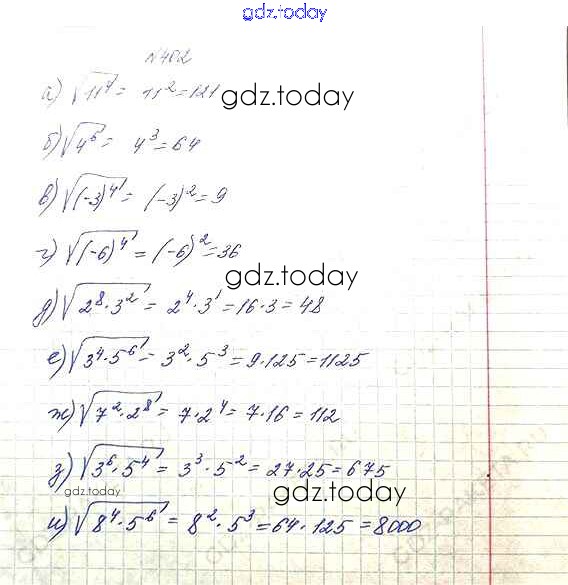 gdz.today
№402
а) √11⁴ = 11² = 121 gdz.today
б) √4⁶ = 4³ = 64
в) √(-3)⁴ = (-3)² = 9
г) √(-6)⁴ = (-6)² = 36
gdz.today
д) √2⁸·3² = 2⁴·3¹ = 16·3 = 48
е) √3⁴·5⁶ = 3²·5³ = 9·125 = 1125
ж) √7²·2⁸ = 7·2⁴ = 7·16 = 112
з) √3⁶·5⁴ = 3³·5² = 27·25 = 675
gdz.today gdz.today
и) √8⁴·5⁶ = 8²·5³ = 64·125 = 8000